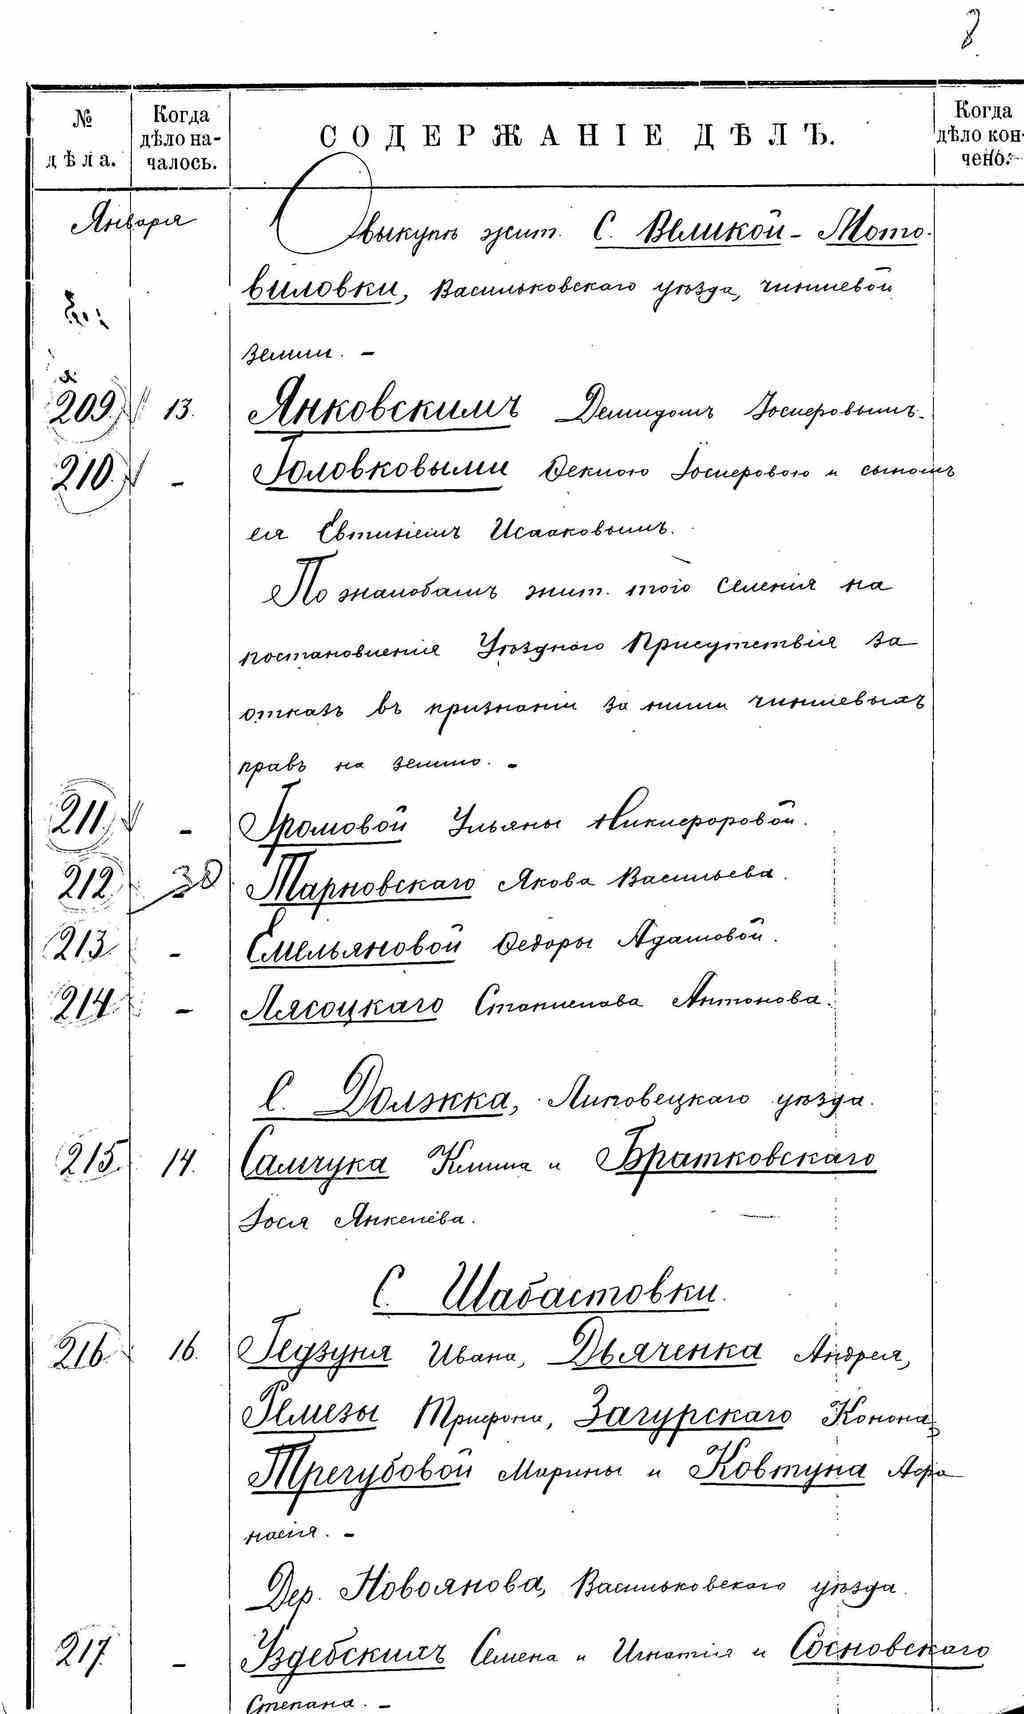 8
№ дѣла.
Когда дѣло началось.
СОДЕРЖАНІЕ ДѢЛЪ.
Когда дѣло кончено.
Января
О выкупѣ жит. С. Великой-Мото-
виловки, Васильковскаго уѣзда, чиншевой
земли. –
209. 13. Янковскимъ Демидомъ Іосифовымъ.
210. – Головковыми Феклою Іосифовою и сыномъ
ея Евтихіемъ Исааковымъ.
По жалобамъ жит. того селенія на
постановленія Уѣзднаго Присутствія за
отказъ въ признаніи за ними чиншевыхъ
правъ на землю. –
211. – Громовой Ульяны Никифоровой.
212. 30 Тарновскаго Якова Васильева.
213. – Емельяновой Федоры Адамовой.
214. – Лясоцкаго Станислава Антонова.
С. Должка, Липовецкаго уѣзда.
215. 14. Самчука Клима и Братковскаго
Іося Янкелева.
С. Шабастовки.
216. 16. Гедзуня Ивана, Дьяченка Андрея,
Ремезы Трифона, Загурскаго Конона,
Трегубовой Марины и Ковтуна Афа-
насія. –
Дер. Новоянова, Васильковскаго уѣзда.
217. – Уздебскихъ Семена и Игнатія и Сосновскаго
Степана. –